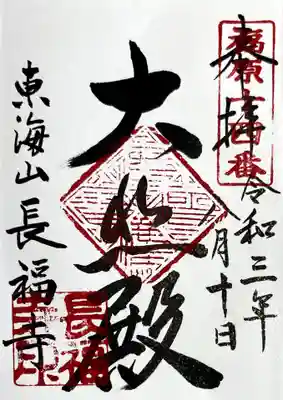 奉拝
令和三年
八月十日
大悲殿
東海山 長福寺